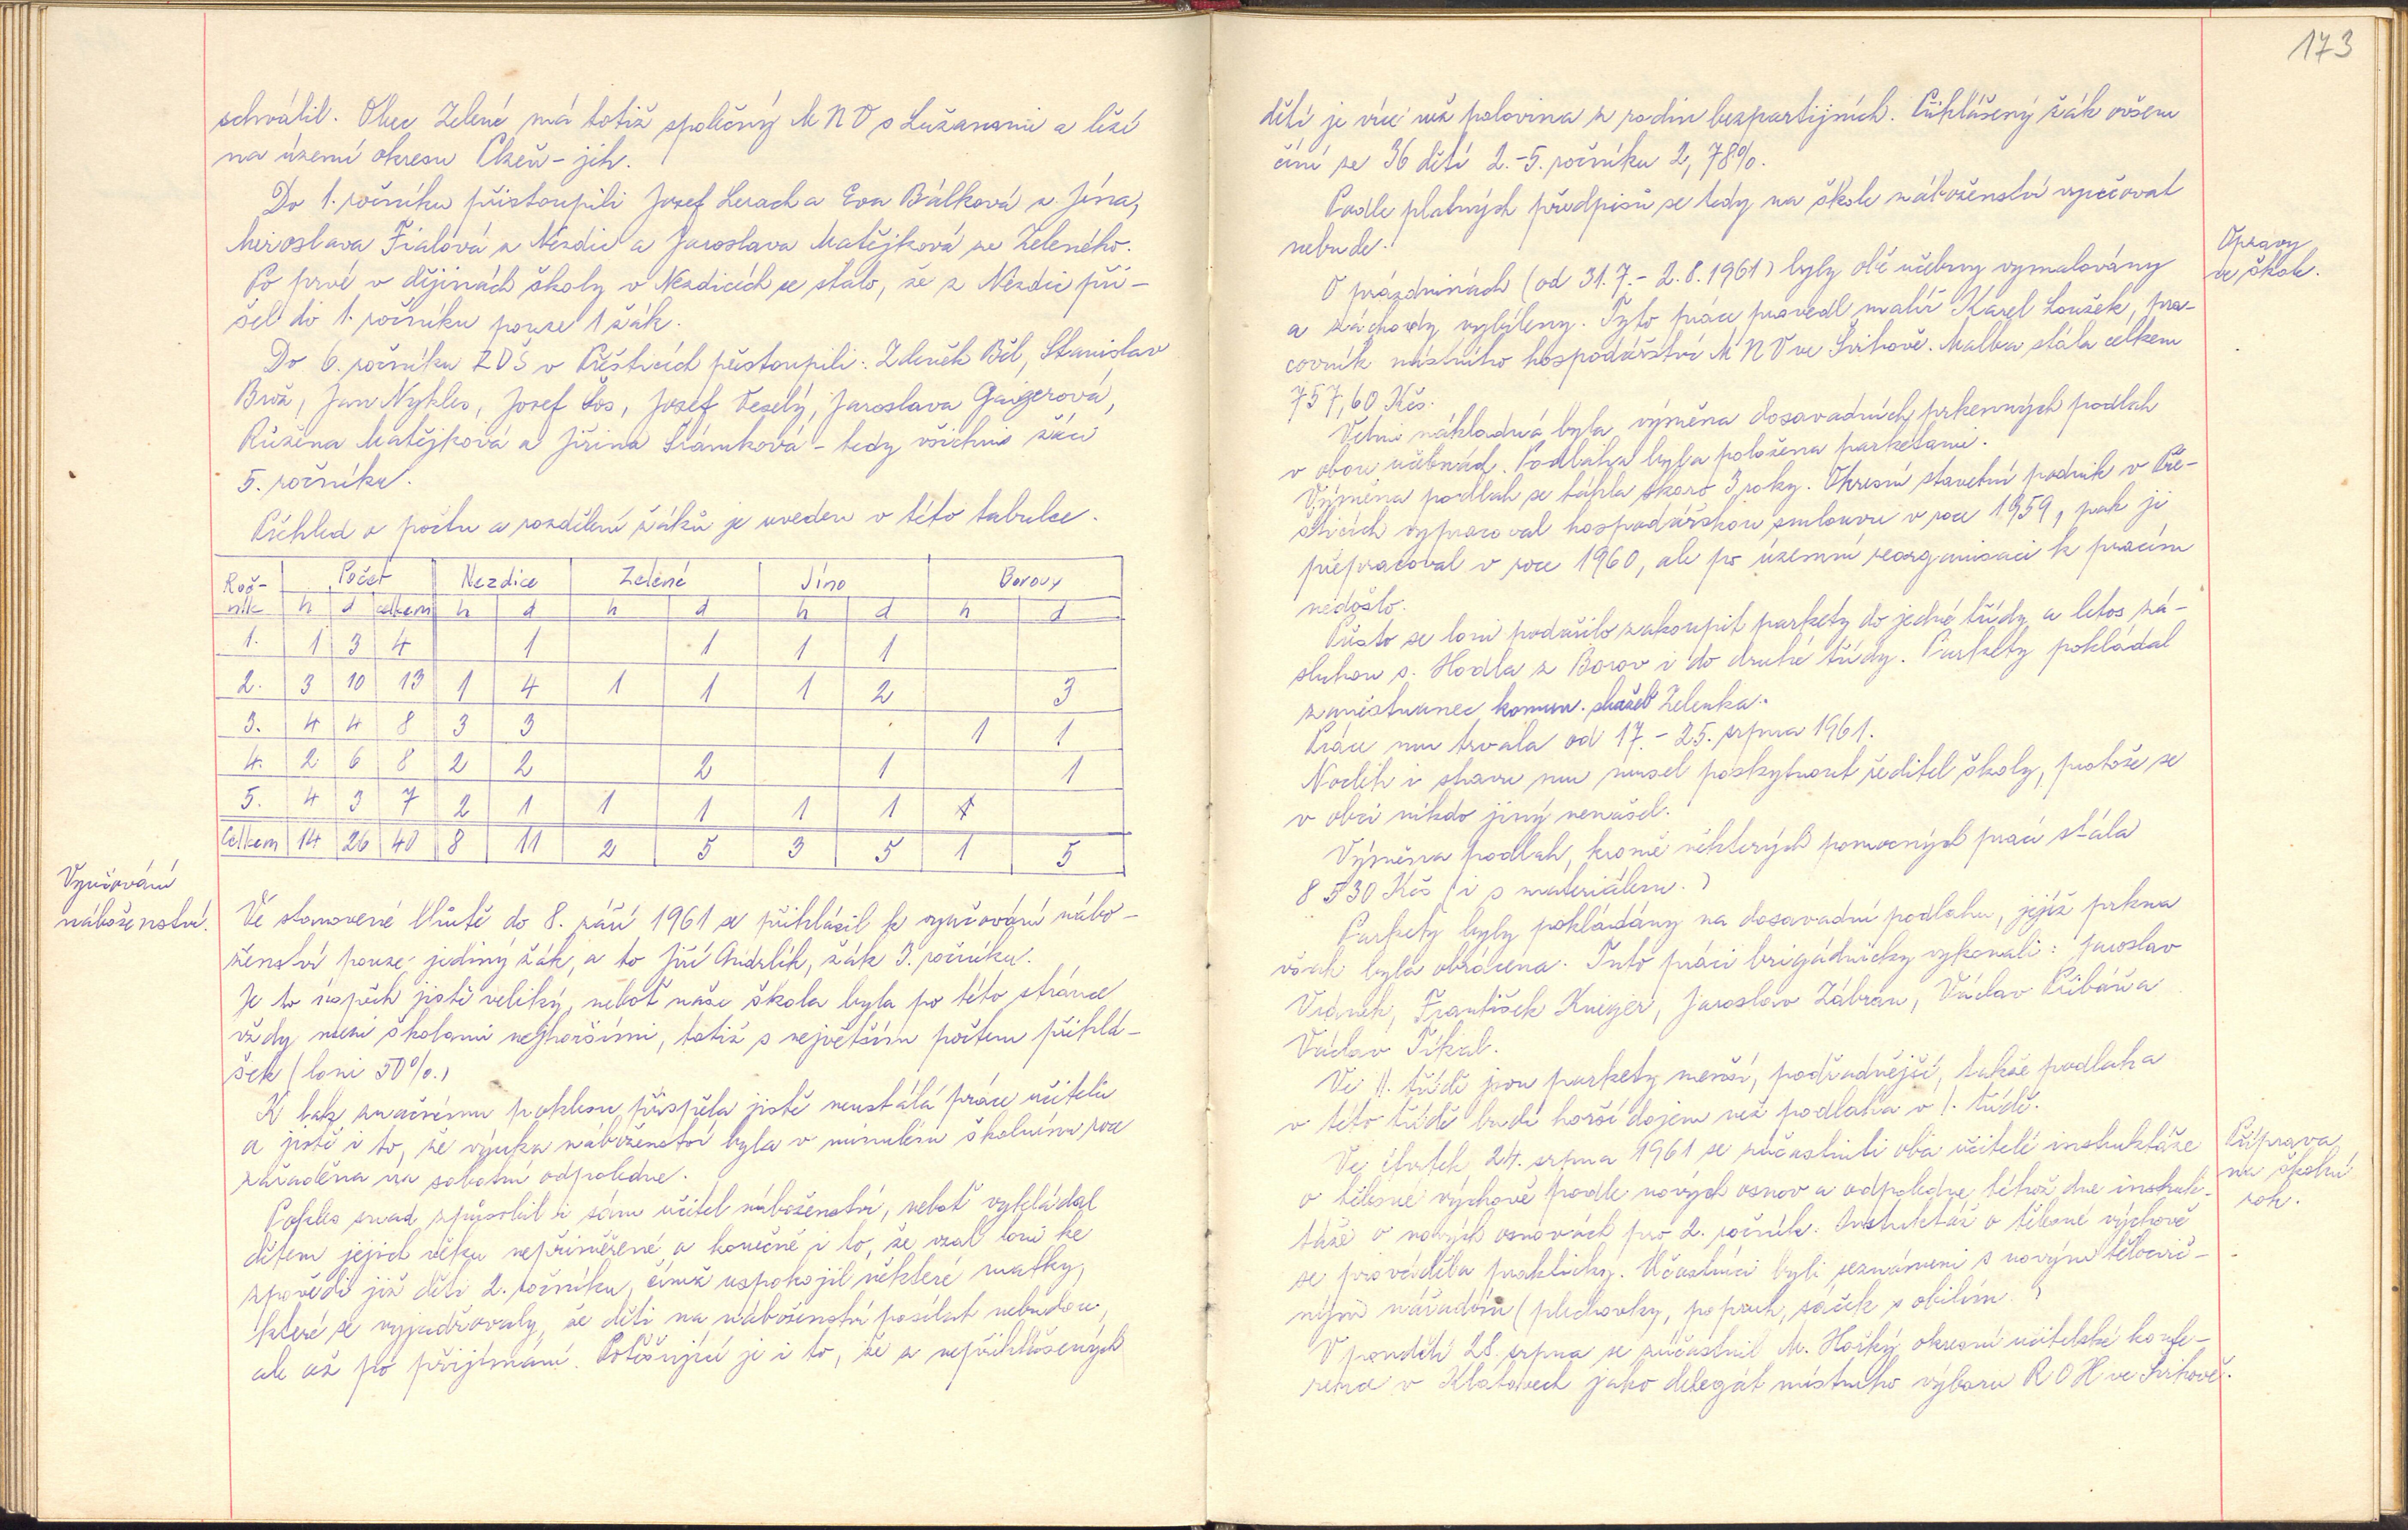 schválil. Obec Zelené má totiž společný MNV s Lužanami a leží
na území okresu Plzeň-jih.
Do 1. ročníku přistoupili Josef Lerach a Eva Bálková z Jína,
Miroslava Fialová z Nezdic a Jaroslava Matějková ze Zeleného.
Po prvé v dějinách školy v Nezdicích se stalo, že z Nezdic při-
šel do 1. ročníku pouze 1 žák.
Do 6. ročníku ZDŠ v Přešticích přestoupili: Zdeněk Běl, Stanislav
Brož, Jan Nykles, Josef Šos, Josef Veselý, Jaroslava Gaigerová,
Růžena Matějková a Jiřina Šrámková - tedy všichni žáci
5. ročníku.
Přehled o počtu a rozdělení žáků je uveden v této tabulce.
Roč- Počet Nezdice Zelené Jíno Borovy
ník h d celkem h d h d h d h d
1. 1 3 4 1 1 1 1
2. 3 10 13 1 4 1 1 1 2 3
3. 4 4 8 3 3 1 1
4. 2 6 8 2 2 2 1 1
5. 4 3 7 2 1 1 1 1 1
Celkem 14 26 40 8 11 2 5 3 5 1 5
Vyučování
náboženství.
Ve stanovené lhůtě do 8. září 1961 se přihlásil k vyučování nábo-
ženství pouze jediný žák, a to Jiří Andrlík, žák 3. ročníku.
Je to úspěch jistě veliký, neboť naše škola byla po této stránce
vždy mezi školami nejhoršími, totiž s největším počtem přihlá-
šek (loni 50%.)
K tak značnému poklesu přispěla jistě neustálá práce učitelů
a jistě i to, že výuka náboženství byla v minulém školním roce
zařaděna na sobotní odpoledne.
Pokles snad způsobil i sám učitel náboženství, neboť vykládal
dětem jejich věku nepřiměřené a konečně i to, že vzal loni ke
zpovědi již děti 2. ročníku, čímž uspokojil některé matky,
které se vyjadřovaly, že děti na náboženství posílat nebudou,
ale až po přijímání. Potěšující je i to, že z nepřihlášených
173
dětí je více než polovina z rodin bezpartijních. Přihlášený žák ovšem
činí ze 36 dětí 2.-5. ročníku 2,78%.
Podle platných předpisů se tedy na škole náboženství vyučovat
nebude.
Opravy
ve škole.
O prázdninách (od 31.7.-2.8.1961) byly obě učebny vymalovány
a záchody vybíleny. Tyto práce provedl malíř Karel Loužek, pra-
covník místního hospodářství MNV ve Švihově. Malba stála celkem
757,60 Kčs.
Velmi nákladná byla výměna dosavadních prkenných podlah
v obou učebnách. Podlaha byla položena parketami.
Výměna podlah se táhla skoro 3 roky. Okresní stavební podnik v Pře-
šticích vypracoval hospodářskou smlouvu v roce 1959, pak ji
přepracoval v roce 1960, ale po územní reorganisaci k pracím
nedošlo.
Přesto se loni podařilo zakoupit parkety do jedné třídy a letos zá-
sluhou s. Hodla z Borov i do druhé třídy. Parkety pokládal
zaměstnanec komun. služeb Zelenka.
Práce mu trvala od 17.-25. srpna 1961.
Nocleh i stravu mu musel poskytnout ředitel školy, protože se
v obci nikdo jiný nenašel.
Výměna podlah, kromě některých pomocných prací stála
8 530 Kčs (i s materiálem.)
Parkety byly pokládány na dosavadní podlahu, jejíž prkna
však byla obrácena. Tuto práci brigádnicky vykonali: Jaroslav
Vránek, František Krieger, Jaroslav Zábran, Václav Přibáň a
Václav Tikal.
Ve II. třídě jsou parkety menší, podřadnější, takže podlaha
v této třídě budí horší dojem než podlaha v I. třídě.
Příprava
na školní
rok.
Ve čtvrtek 24. srpna 1961 se zúčastnili oba učitelé instruktáže
o tělesné výchově podle nových osnov a odpoledne téhož dne instruk-
táže o nových osnovách pro 2. ročník. Instruktáž o tělesné výchově
se prováděla prakticky. Účastníci byli seznámeni s novým tělocvič-
ným nářadím (plechovky, popruh, sáček s obilím.)
V pondělí 28. srpna se zúčastnil M. Hošký okresní učitelské konfe-
rence v Klatovech jako delegát místního výboru ROH ve Švihově.